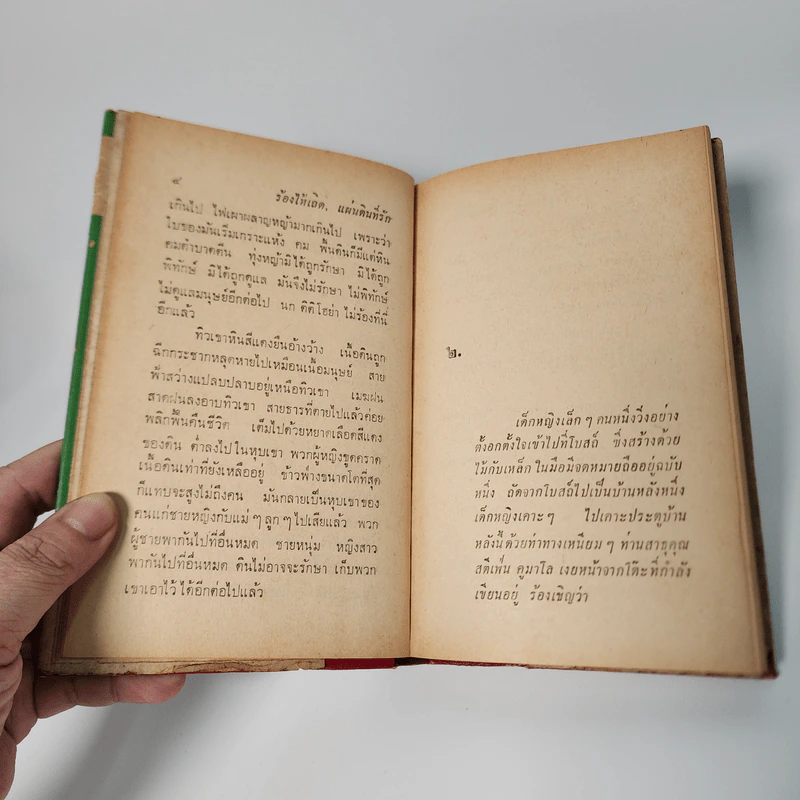 ๔
ร้องไห้เถิด, แผ่นดินที่รัก
เกินไป ไฟเผาผลาญหญ้ามากเกินไป เพราะว่า
ใบของมันเริ่มเกราะแห้ง คม พื้นดินก็มีแต่หิน
คมตำบาดตีน ทุ่งหญ้ามิได้ถูกรักษา มิได้ถูก
พิทักษ์ มิได้ถูกดูแล มันจึงไม่รักษา ไม่พิทักษ์
ไม่ดูแลมนุษย์อีกต่อไป นก ติติโฮย่า ไม่ร้องที่นี่
อีกแล้ว
ทิวเขาหินสีแดงยืนอ้างว้าง เนื้อดินถูก
ฉีกกระชากหลุดหายไปเหมือนเนื้อมนุษย์ สาย
ฟ้าสว่างแปลบปลาบอยู่เหนือทิวเขา เมฆฝน
สาดฝนลงอาบทิวเขา สายธารที่ตายไปแล้วค่อย
พลิกฟื้นคืนชีวิต เต็มไปด้วยหยาดเลือดสีแดง
ของดิน ต่ำลงไปในหุบเขา พวกผู้หญิงขูดคราด
เนื้อดินเท่าที่ยังเหลืออยู่ ข้าวฟ่างขนาดโตที่สุด
ก็แทบจะสูงไม่ถึงคน มันกลายเป็นหุบเขาของ
คนแก่ชายหญิงกับแม่ ๆ ลูก ๆ ไปเสียแล้ว พวก
ผู้ชายพากันไปที่อื่นหมด ชายหนุ่ม หญิงสาว
พากันไปที่อื่นหมด ดินไม่อาจจะรักษา เก็บพวก
เขาเอาไว้ ได้อีกต่อไปแล้ว
๒.
เด็กหญิงเล็ก ๆ คนหนึ่งวิ่งอย่าง
ตั้งอกตั้งใจเข้าไปที่โบสถ์ ซึ่งสร้างด้วย
ไม้กับเหล็ก ในมือมีจดหมายถืออยู่ฉบับ
หนึ่ง ถัดจากโบสถ์ไปเป็นบ้านหลังหนึ่ง
เด็กหญิงเคาะ ๆ ไปเคาะประตูบ้าน
หลังนี้ด้วยท่าทางเหนียม ๆ ท่านสาธุคุณ
สตีเฟ่น คูมาโล เงยหน้าจากโต๊ะที่กำลัง
เขียนอยู่ ร้องเชิญว่า